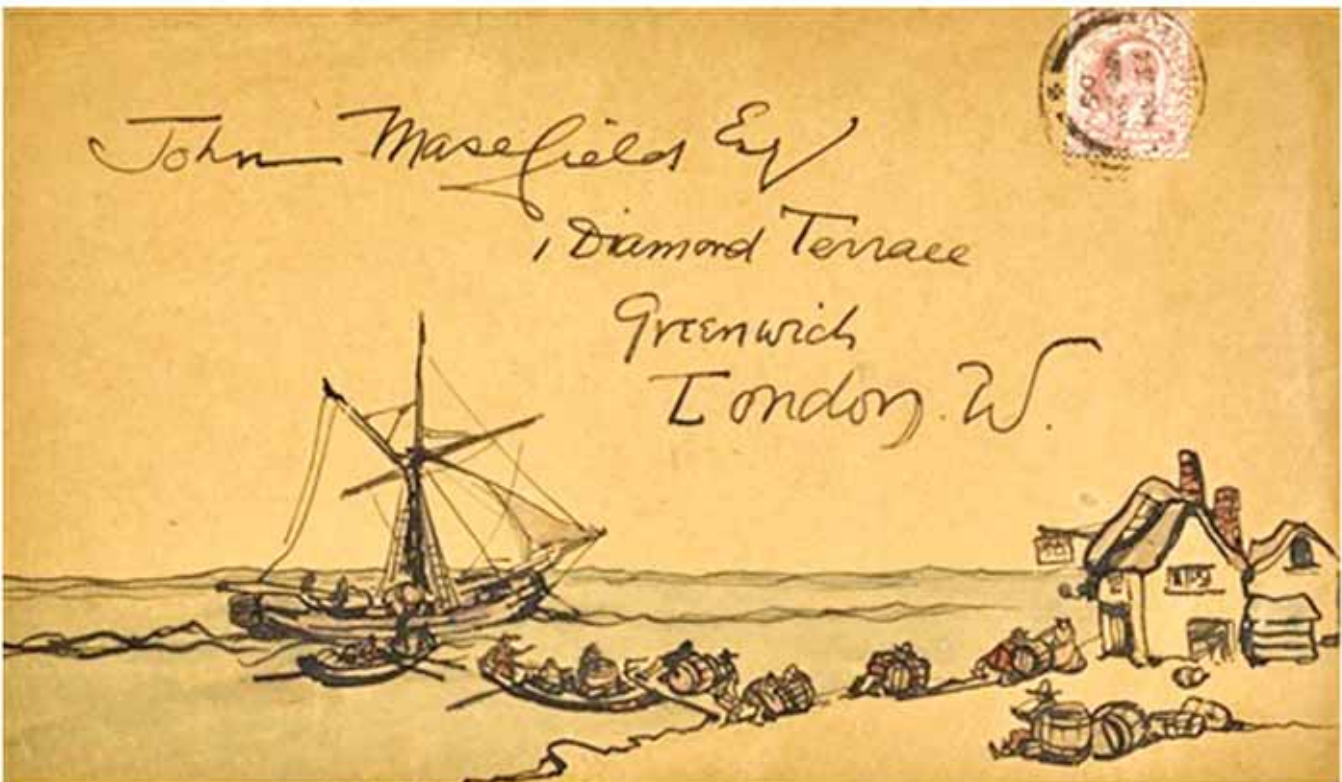 John Masefield Esq
1 Diamond Terrace
Greenwich
London. W.